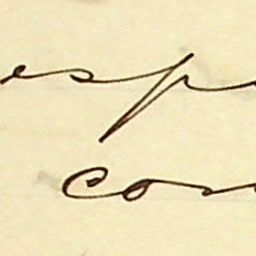 esp
con